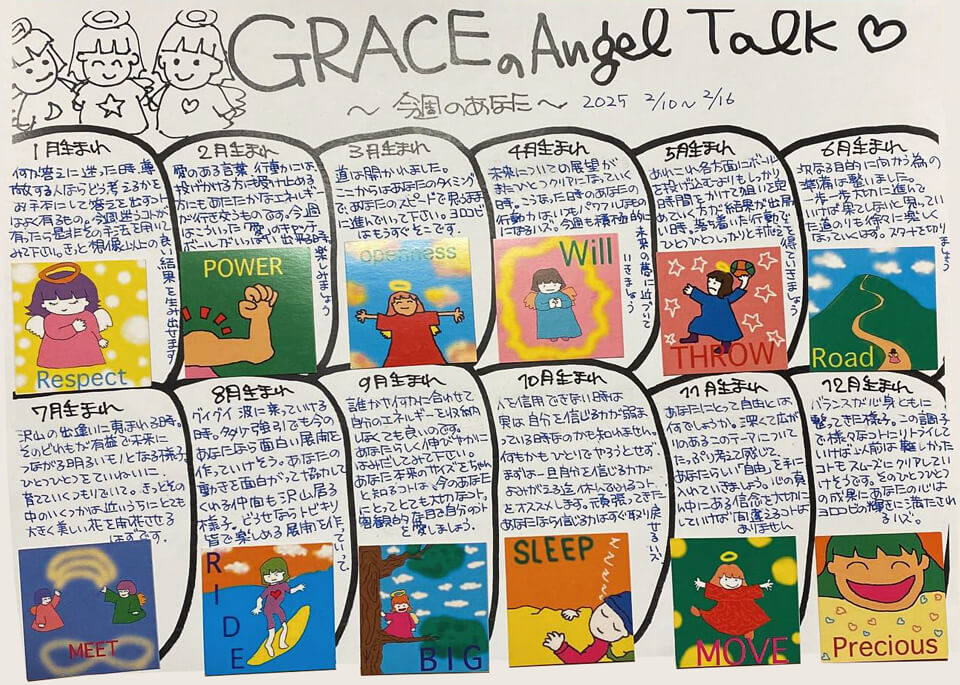 GRACEのAngel Talk♡
～今週のあなた～ 2025 2/10～2/16
1月生まれ
何か答えに迷った時、尊
敬する人ならどう考えるかを
お手本にして答えを出すの
はよく有るもの。今週迷うコトが
有ったら是非その手法を用いて
みて下さい。きっと想像以上の良い
結果を生み出せます
Respect
2月生まれ
愛のある言葉、行動かには
投げかける方にも受け止める
方にもあたたかなエネルギー
が行き交うものです。今週
はこういった「愛」のキャッチ
ボールがいっぱい出来る時。
楽しみましょう
POWER
3月生まれ
道は開かれました。
ここからはあなたのタイミング
で、あなたのスピードで思うまま
に進んで行って下さい。ヨロコビ
はもうすぐそこです。
openness
4月生まれ
未来についての展望が
またひとつクリアになっていく
時。こうなった時のあなたの
行動力はいつもパワフルなもの
になるハズ。今週も積極的に
未来の夢に近づいて
いきましょう
Will
5月生まれ
あれこれ各方面にボール
を投げ込むよりもしっかり
時間をかけて狙いを定
めていく方が結果が出易
い時。落ち着いた行動で
ひとつひとつしっかりと手応えを
得ていきましょう
THROW
6月生まれ
次なる目的に向かう為の
準備は整いました。
一歩一歩大切に進んで
いけば果てしないと思ってい
た道のりも徐々に楽しく
なっていくはず。スタートを切り
ましょう
Road
7月生まれ
沢山の出逢いに恵まれる時。
そのどれもが有益で未来に
つながる明るいモノとなる様子。
ひとつひとつをていねいに
育てていくつもりでいて。きっとその
中のいくつかは近いうちにとても
大きく美しい花を開花させる
はずです。
MEET
8月生まれ
グイグイ波に乗っていける
時。多少強引でも今の
あなたなら面白い展開を
作っていけそう。あなたの
動きを面白がって協力して
くれる仲間も沢山居る
様子。どうせならトビキリ
皆で楽しめる展開を作
っていって
RIDE
9月生まれ
誰かや何かに合わせて
自分のエネルギーを収納
しなくても良いのです。
あなたらしく伸びやかに
はみだしてみて下さい。
あなた本来のサイズをちゃん
と知るコトは、今のあなた
にとってとても大切なコト。
客観的な目で自分のコト
を愛しましょう。
BIG
10月生まれ
人を信用できない時は
実は自分を信じる力が弱ま
っている時なのかも知れません。
何もかもひとりでやろうとせず、
まずは一旦自分を信じる力が
よみがえる迄休んでみるコト
をオススメします。元々頑張ってきた
あなたなら信じる力はすぐ取り
戻せるハズ
SLEEP
11月生まれ
あなたにとって自由とは
何でしょうか。深くて広が
りのあるこのテーマについて
たっぷり考え感じて、
あなたらしい"自由"を手に
入れていきましょう。心の真
ん中にある信念を大切に
していけば間違えるコトは
ありません
MOVE
12月生まれ
バランスが心身ともに
整ってきた様子。この調子
で様々なコトにトライして
いけば以前は難しかった
コトもスムーズにクリアしてい
けそうです。そのひとつひとつ
の成果にあなたの心は
ヨロコビの輝きに満たされ
るハズ。
Precious